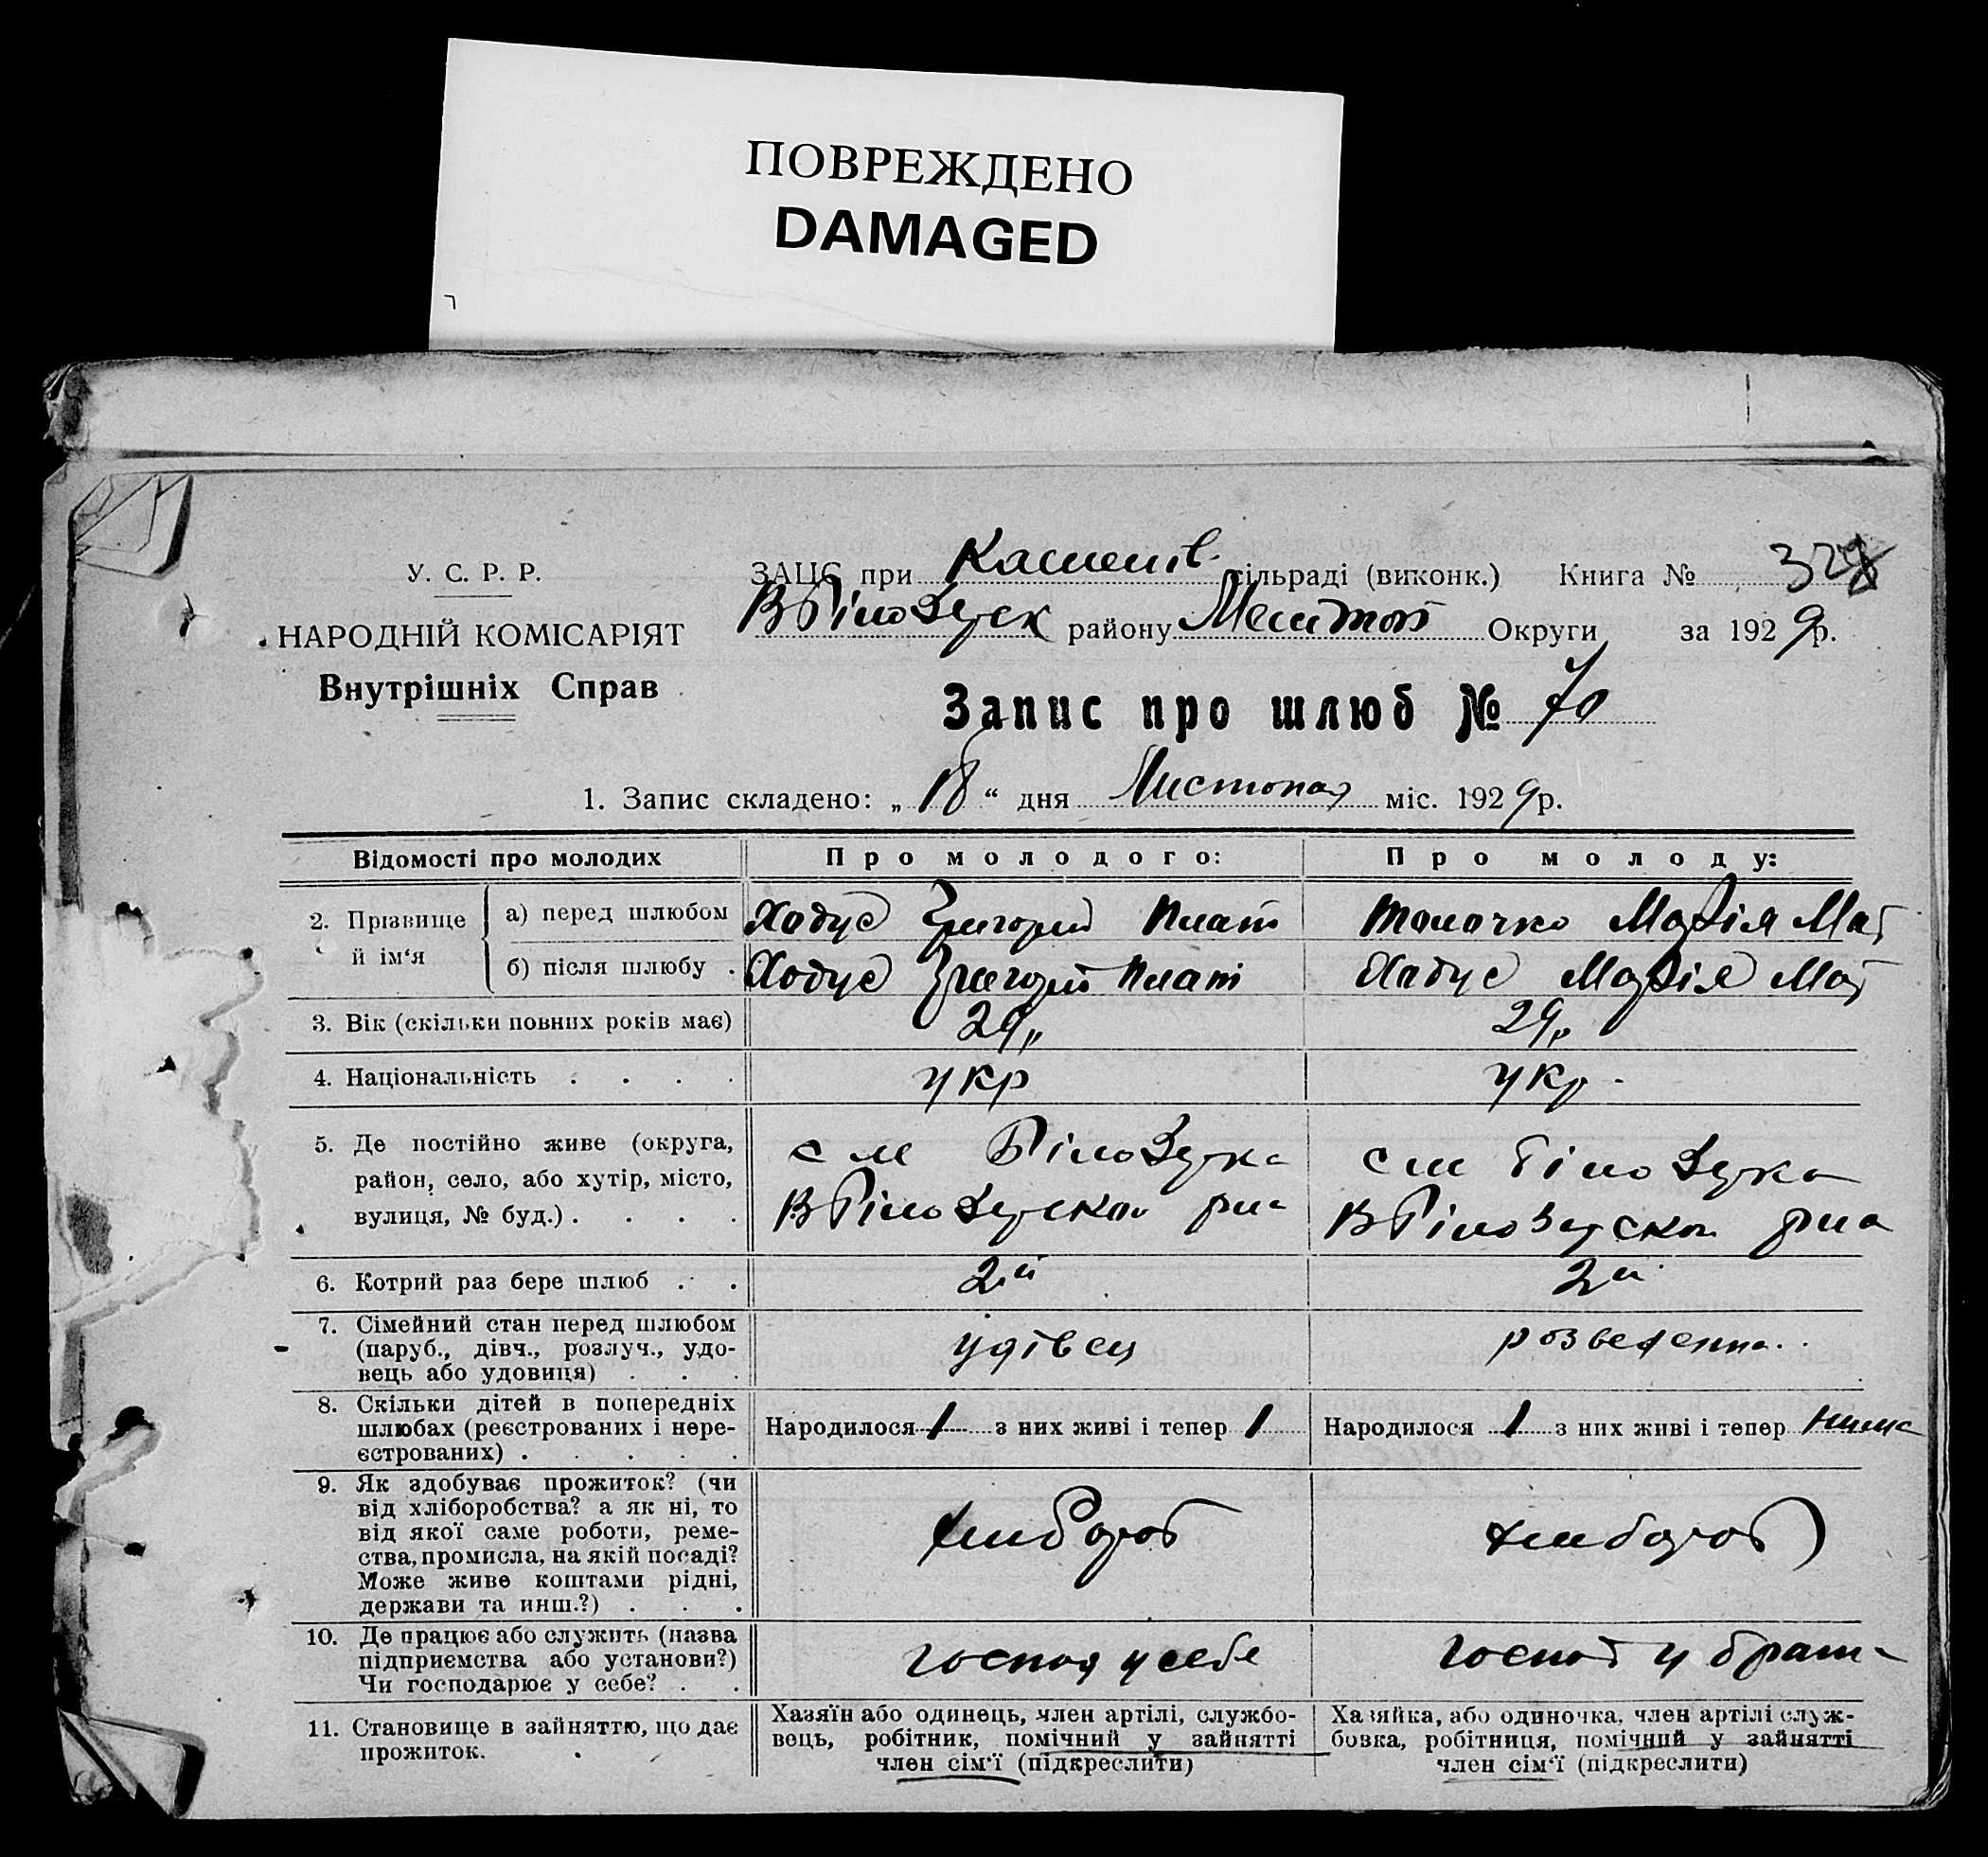 ПОВРЕЖДЕНО
DAMAGED
У. С. Р. Р.
НАРОДНІЙ КОМІСАРІЯТ
Внутрішніх Справ
ЗАЦС при сільраді (виконк.) Книга №
району Округи за 1929 р.
Запис про шлюб № 70
1. Запис складено: „18“ дня Листопад міс. 1929 р.
Відомості про молодих Про молодого: Про молоду:
2. Прізвище й ім‘я
а) перед шлюбом Ходус Григорій Плат Толочко Марія Мат
б) після шлюбу . Ходус Григорій Плат Ходус Марія Мат
3. Вік (скільки повних років має) 29 29
4. Національність . . . . укр укр.
5. Де постійно живе (округа,
район, село, або хутір, місто,
вулиця, № буд.) . . . .
6. Котрий раз бере шлюб . . 2й 2й
7. Сімейний стан перед шлюбом
(паруб., дівч., розлуч., удо-
вець або удовиця) . . .
удівец розведенна.
8. Скільки дітей в попередніх
шлюбах (реєстрованих і нере-
єстрованих) . . . . .
Народилося 1 з них живі і тепер 1
Народилося 1 з них живі і тепер
9. Як здобуває прожиток? (чи
від хліборобства? а як ні, то
від якої саме роботи, реме-
ства, промисла, на якій посаді?
Може живе коштами рідні,
держави та инш.?) . . .
хлібороб хлібороб
10. Де працює або служить (назва
підприємства або установи?)
Чи господарює у себе? . .
господ у себе господ у брата
11. Становище в зайняттю, що дає
прожиток.
Хазяїн або одинець, член артілі, службо-
вець, робітник, помічний у зайнятті
член сім‘ї (підкреслити)
Хазяйка, або одиночка, член артілі служ-
бовка, робітниця, помічний у зайнятті
член сім‘ї (підкреслити)